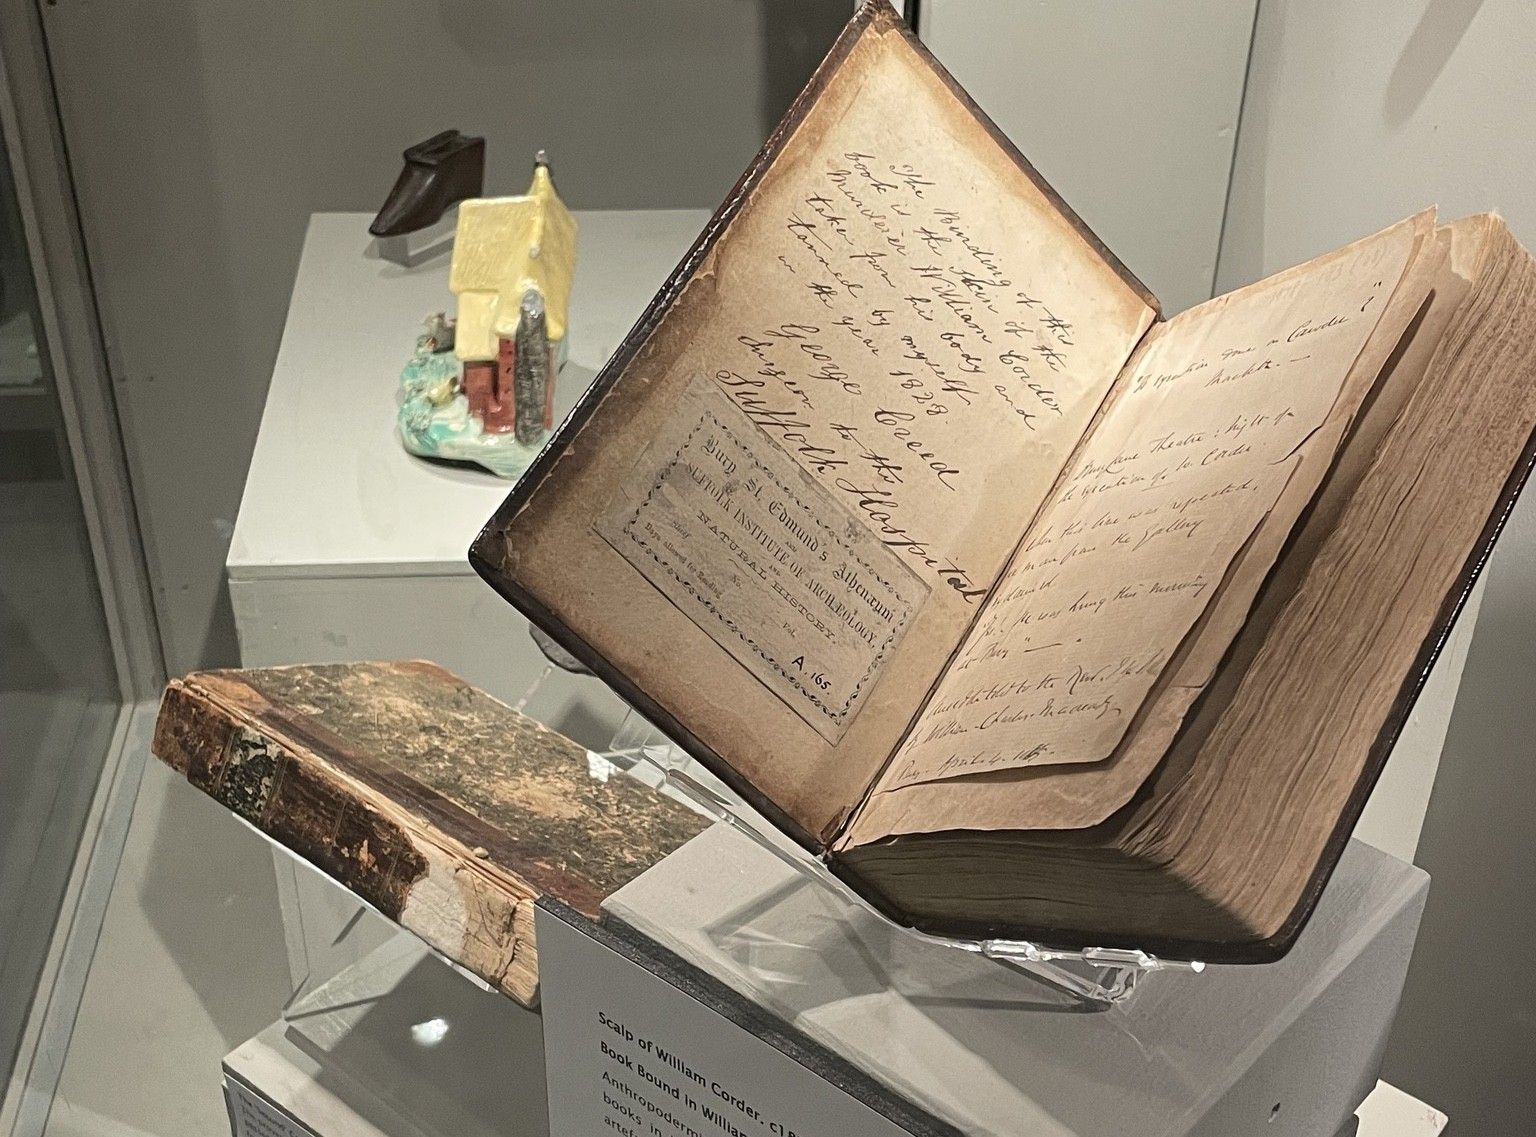 The Binding of this
book is the skin of the
Murderer William Corder
taken from his body and
tanned by myself
in the year 1828.
George Creed
Surgeon to the
Suffolk Hospital
Bury St. Edmund's Athenæum
AND
SUFFOLK INSTITUTE OF ARCHÆOLOGY,
AND
NATURAL HISTORY.
Shelf No. Vol.
Days allowed for Reading
A. 165.
Macbeth. —
Theatre: night of
the execution of W. Corder.
When this line was repeated,
a man from the Gallery
He was hung this morning
at Bury
to the Revd.
by William Charles Macready
Bury. April 4.
Scalp of William Corder. c18
Book Bound in William
Anthropodermi
books in
artef